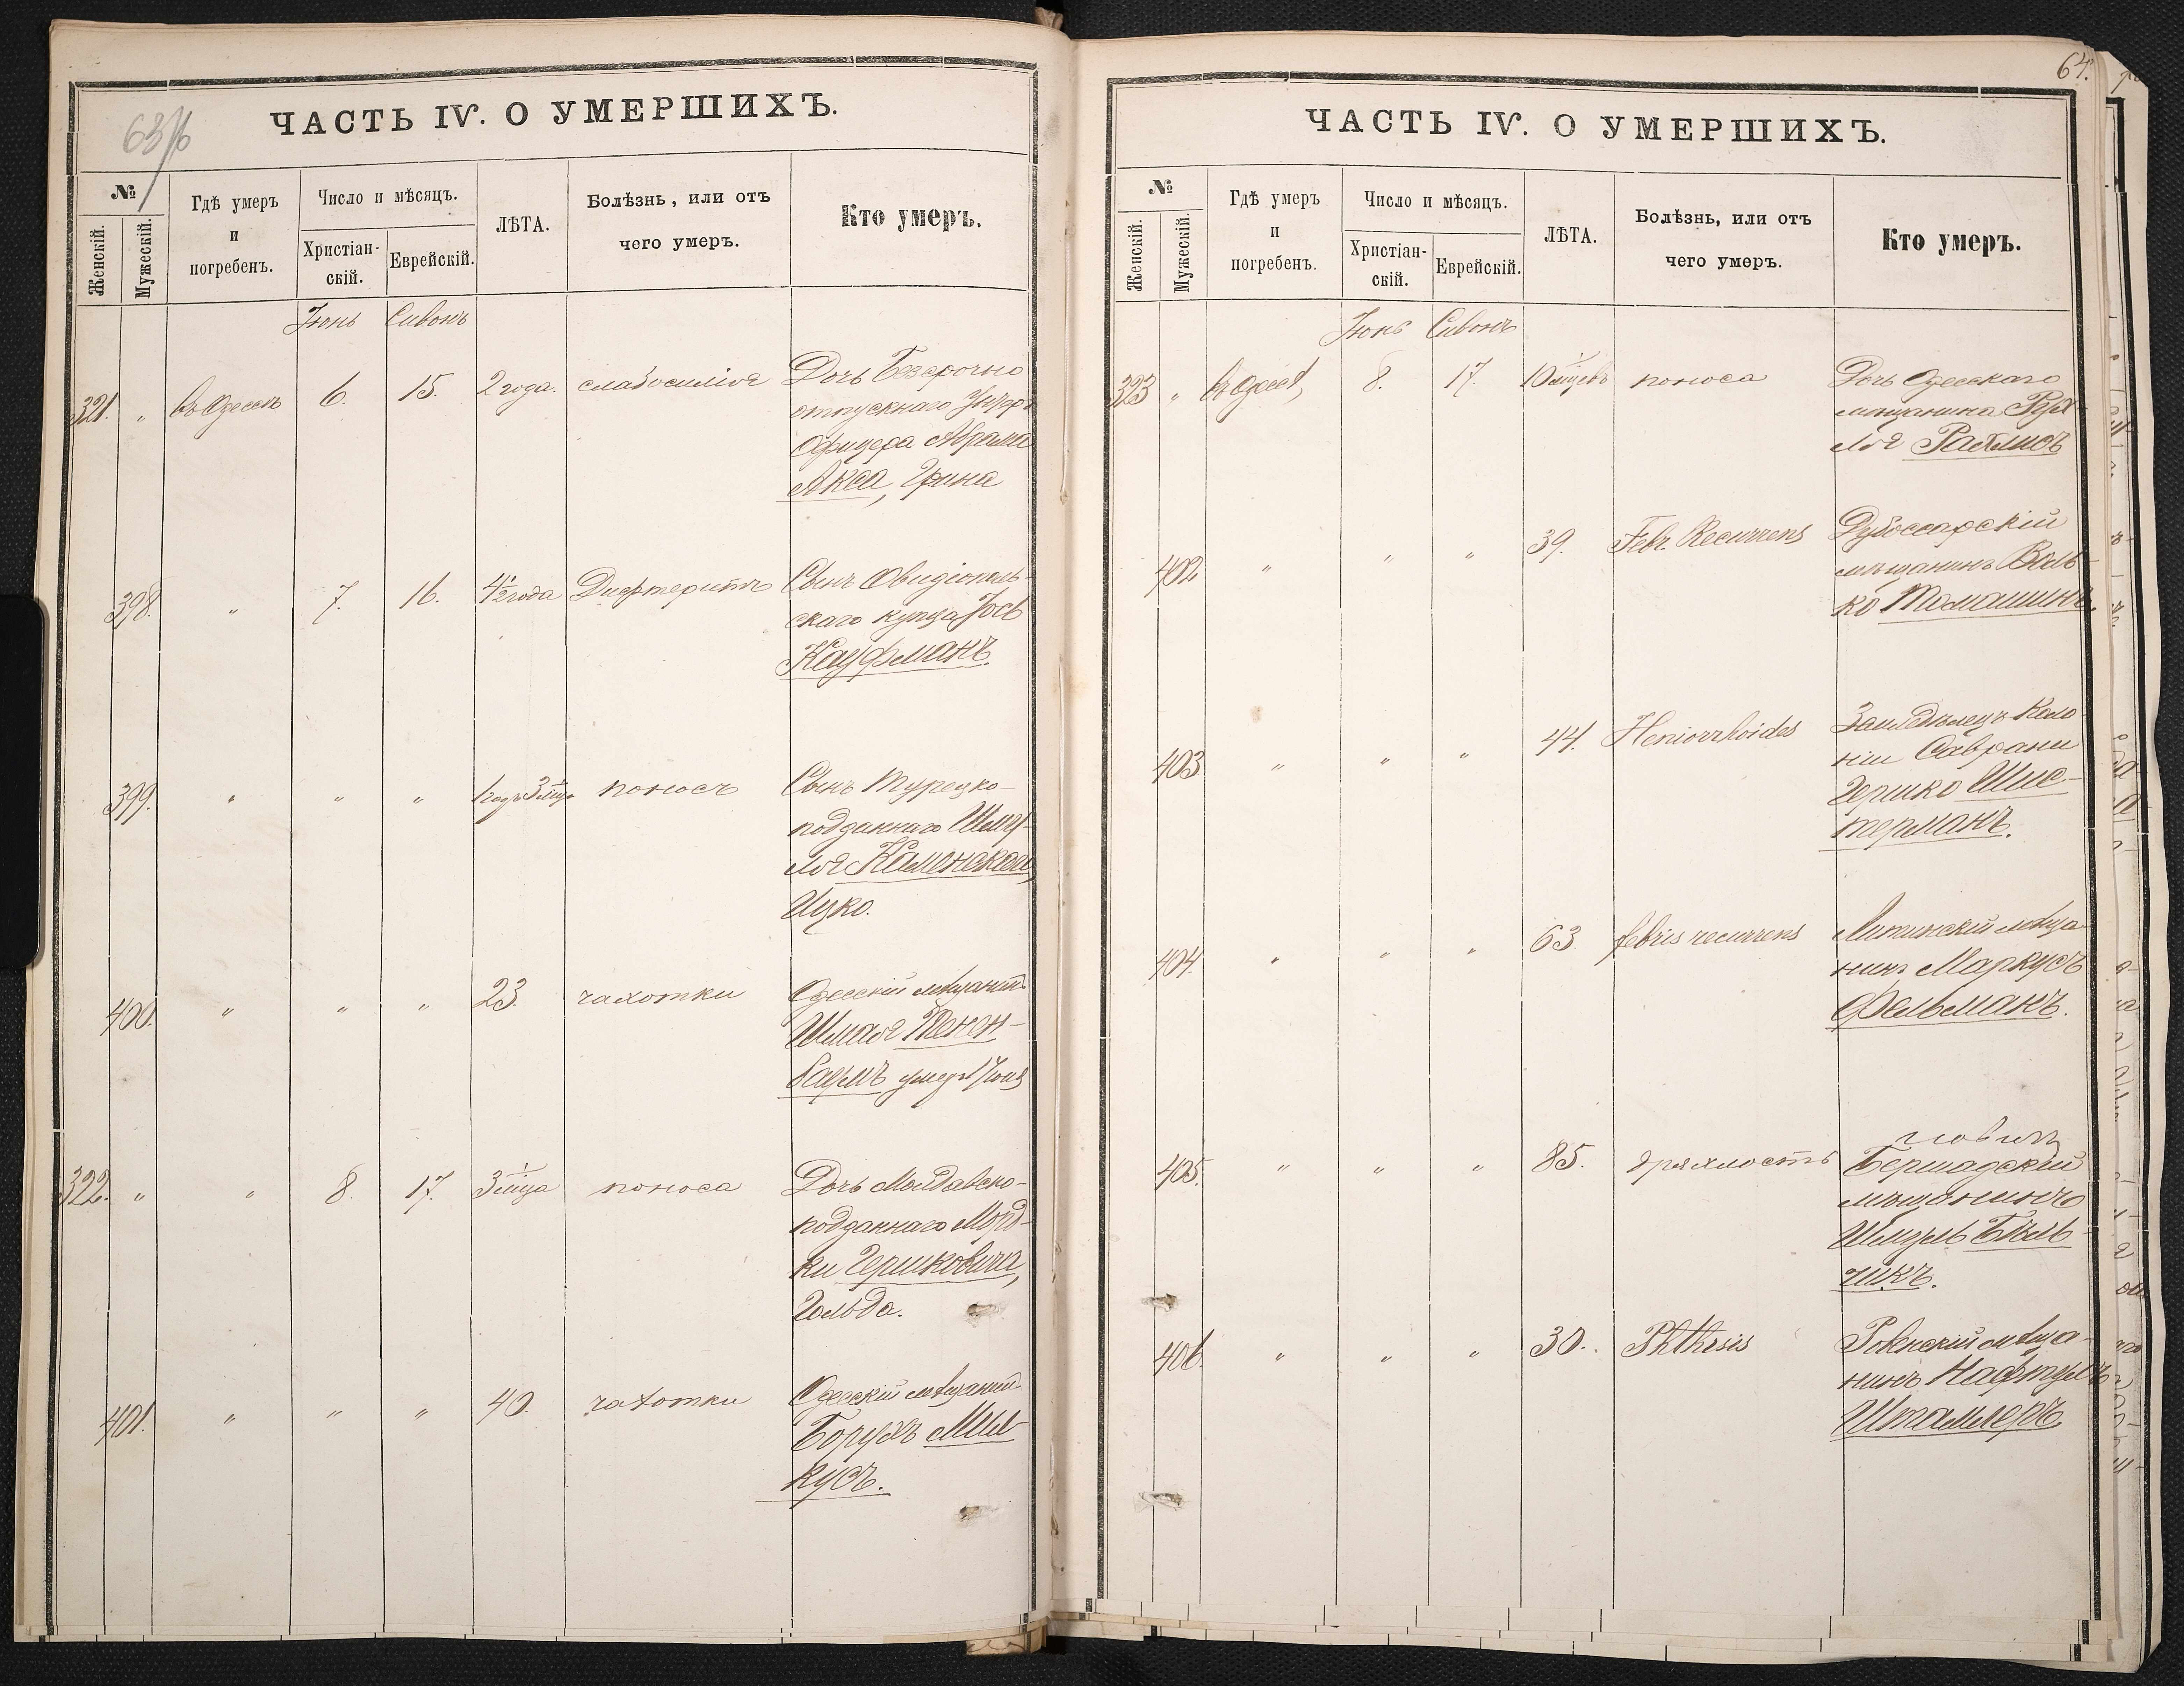 63/б
ЧАСТЬ IV. О УМЕРШИХЪ.
№
Женскій.
Мужескій.
Гдѣ умеръ
и
погребенъ.
Число и мѣсяцъ.
Христіан-
скій.
Еврейскій.
ЛѢТА.
Болѣзнь, или отъ
чего умеръ.
Кто умеръ.
Іюнь Сивонъ
321. " въ Одессѣ 6. 15. 2 года. слабосилія Дочь Безсрочно
отпускнаго Унтеръ
Офицера Абрама
Акса,
398. " 7. 16. 4½ года Дифтеритъ Сынъ Овидіополь-
скаго купца Іось
Кауфманъ.
399. " " " 1 годъ 3 м-ца поносъ Сынъ Турецко-
подданнаго Шму-
ля Каменскаго,
Ицко.
400. " " " 23. чахотки Одесскій мѣщанинъ
Шмая Тенен-
баумъ
322. " " 8. 17. 3 м-ца поноса Дочь Молдавско-
подданнаго Морд-
ки Гершковича,
Гольда.
401. " " " 40. чахотки Одесскій мѣщанинъ
Борухъ Мил-
кусъ.
64.
ЧАСТЬ IV. О УМЕРШИХЪ.
№
Женскій.
Мужескій.
Гдѣ умеръ
и
погребенъ.
Число и мѣсяцъ.
Христіан-
скій.
Еврейскій.
ЛѢТА.
Болѣзнь, или отъ
чего умеръ.
Кто умеръ.
Іюнь Сивонъ
323 " въ Одессѣ, 8. 17. 10 м-цевъ поноса Дочь Одесскаго
мѣщанина Рух-
ля
402 " " " 39. Febr. Recurrens Дубоссарскій
мѣщанинъ Воль-
ко Томашинъ.
403 " " " 44. Hemorrhoides Земледѣлецъ Коло-
ніи Саврани
Гершко Шис-
терманъ.
404. " " " 63. febris recurrens Литинскій мѣща-
нинъ Маркусъ
Фельманъ.
405. " " " 85. дряхлость Бершадскій
мѣщанинъ
Шмуль Бѣль-
чикъ.
406. " " " 30. Phthisis Ровенскій мѣща-
нинъ Нафтулъ
Штамлеръ